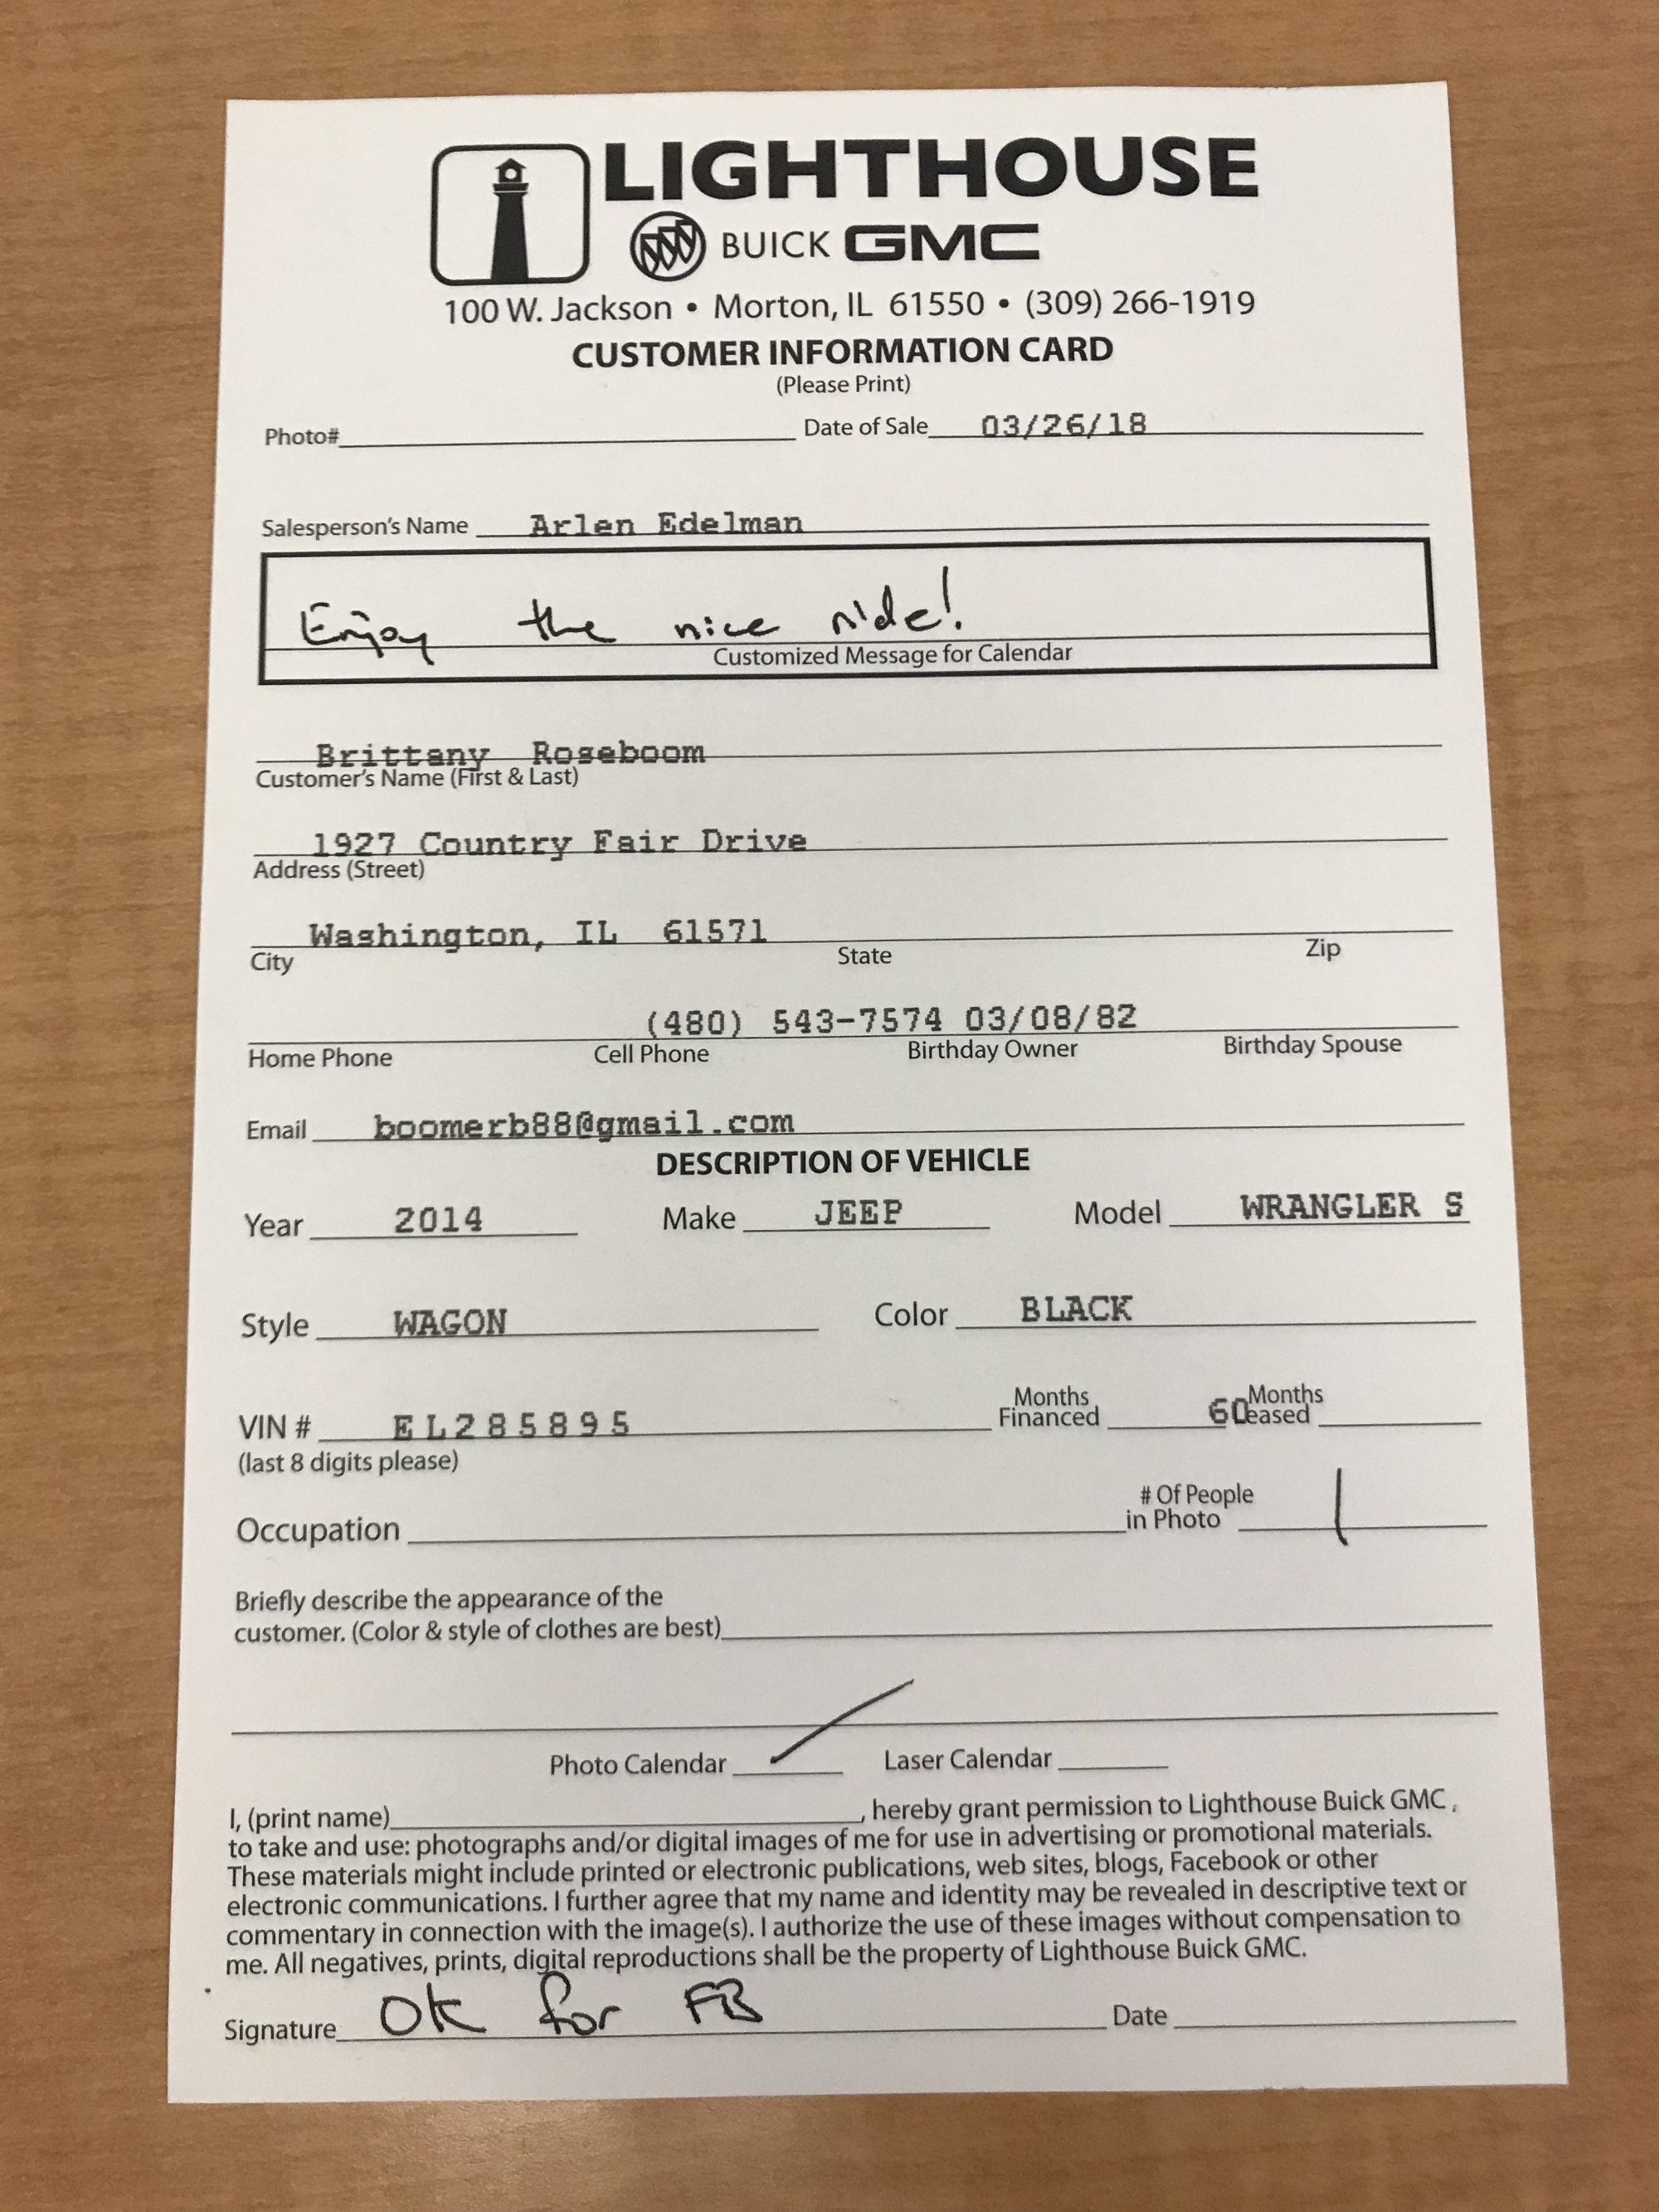 LIGHTHOUSE
BUICK GMC
100 W. Jackson • Morton, IL 61550 • (309) 266-1919
CUSTOMER INFORMATION CARD
(Please Print)
Photo# Date of Sale 03/26/18
Salesperson's Name Arlen Edelman
Enjoy the nice ride!
Customized Message for Calendar
Brittany Roseboom
Customer's Name (First & Last)
1927 Country Fair Drive
Address (Street)
Washington, IL 61571
City State Zip
(480) 543-7574 03/08/82
Home Phone Cell Phone Birthday Owner Birthday Spouse
Email boomerb88@gmail.com
DESCRIPTION OF VEHICLE
Year 2014 Make JEEP Model WRANGLER S
Style WAGON Color BLACK
VIN # EL285895 Months Financed 60 Months Leased
(last 8 digits please)
Occupation # Of People in Photo 1
Briefly describe the appearance of the
customer. (Color & style of clothes are best)
Photo Calendar Laser Calendar
I, (print name) , hereby grant permission to Lighthouse Buick GMC ,
to take and use: photographs and/or digital images of me for use in advertising or promotional materials.
These materials might include printed or electronic publications, web sites, blogs, Facebook or other
electronic communications. I further agree that my name and identity may be revealed in descriptive text or
commentary in connection with the image(s). I authorize the use of these images without compensation to
me. All negatives, prints, digital reproductions shall be the property of Lighthouse Buick GMC.
Signature OK for FB Date